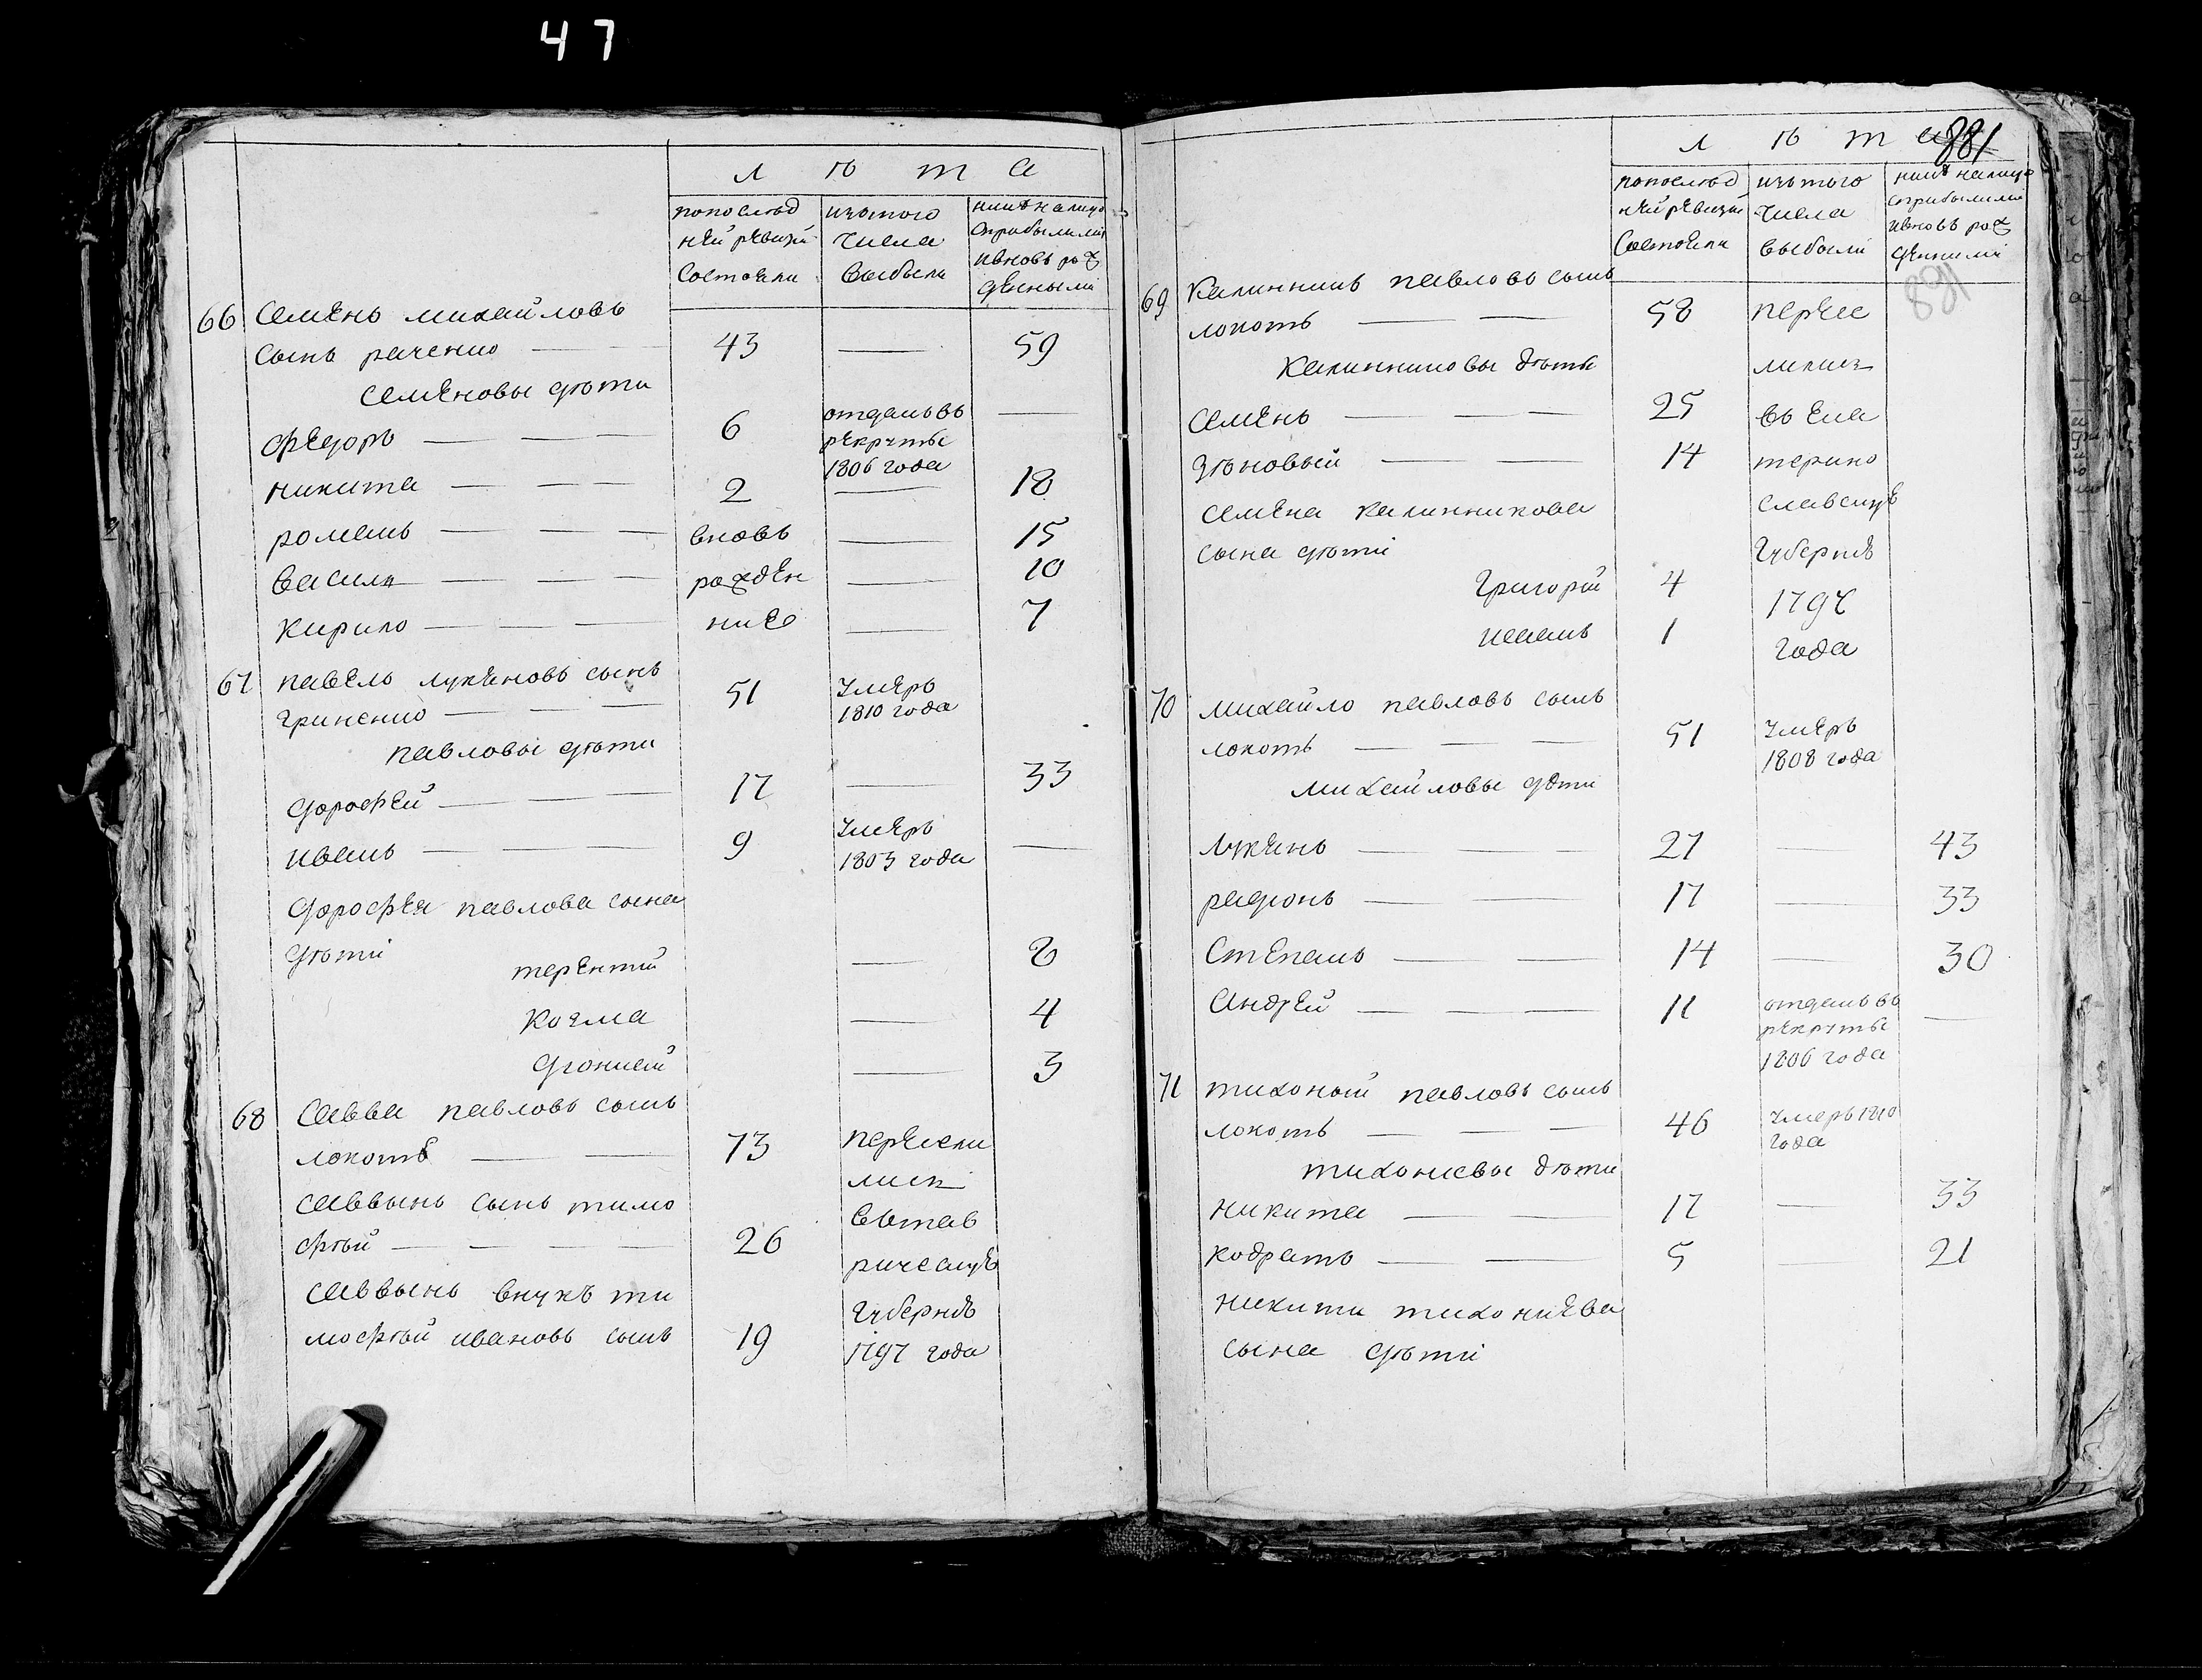 47
л ѣ т а
попослѣд
ней ревизіи
состояли
изътого
числа
выбыли
нынѣ налицо
сприбылыми
ивновь рож
денными
66 Семенъ михайловъ
сынъ раченко 43 — 59
Семеновы дѣти
Федоръ 6 отданъ въ —
рекруты
1806 года
никита 2 — 18
романъ вновь — 15
василій рожден — 10
кирило ние — 7
67 павелъ лукяновъ сынъ
гриненко 51 умеръ
1810 года
павловы дѣти
дорофей 17 — 33
иванъ 9 умеръ —
1803 года
дорофея павлова сына
дѣти
терентий — 8
козма — 4
— 3
68 Савва павловъ сынъ
локоть 73 пересели
лись
Саввынъ сынъ тимо
фѣй 26 вътав
ричесщую
Саввынъ внукъ ти
губернію
мофѣй ивановъ сынъ 19 1797 года
л ѣ т а
881
попослѣд
ней ревизіи
состояли
изътого
числа
выбыли
нынѣ налицо
сприбылыми
ивновь рож
денными
881
69 Калинникъ павловъ сынъ
локоть 58 пересе
Калинниковы дѣти лились
Семенъ 25 въ ека
зѣновый 14 терино
Семена Калинникова славсщую
сына дѣти губернію
григорий 4 1797
иванъ 1 года
70 михайло павловъ сынъ
локоть 51 умеръ
1808 года
михайловы дѣти
лукянъ 27 — 43
радионъ 17 — 33
Степанъ 14 — 30
андрей 11 отданъ въ —
рекруты
1806 года
71 тихоний павловъ сынъ
локоть 46 умеръ 1810
года
тихониевы дѣти
никита 17 — 33
кодратъ 5 — 21
никити тихониева
сына дѣти